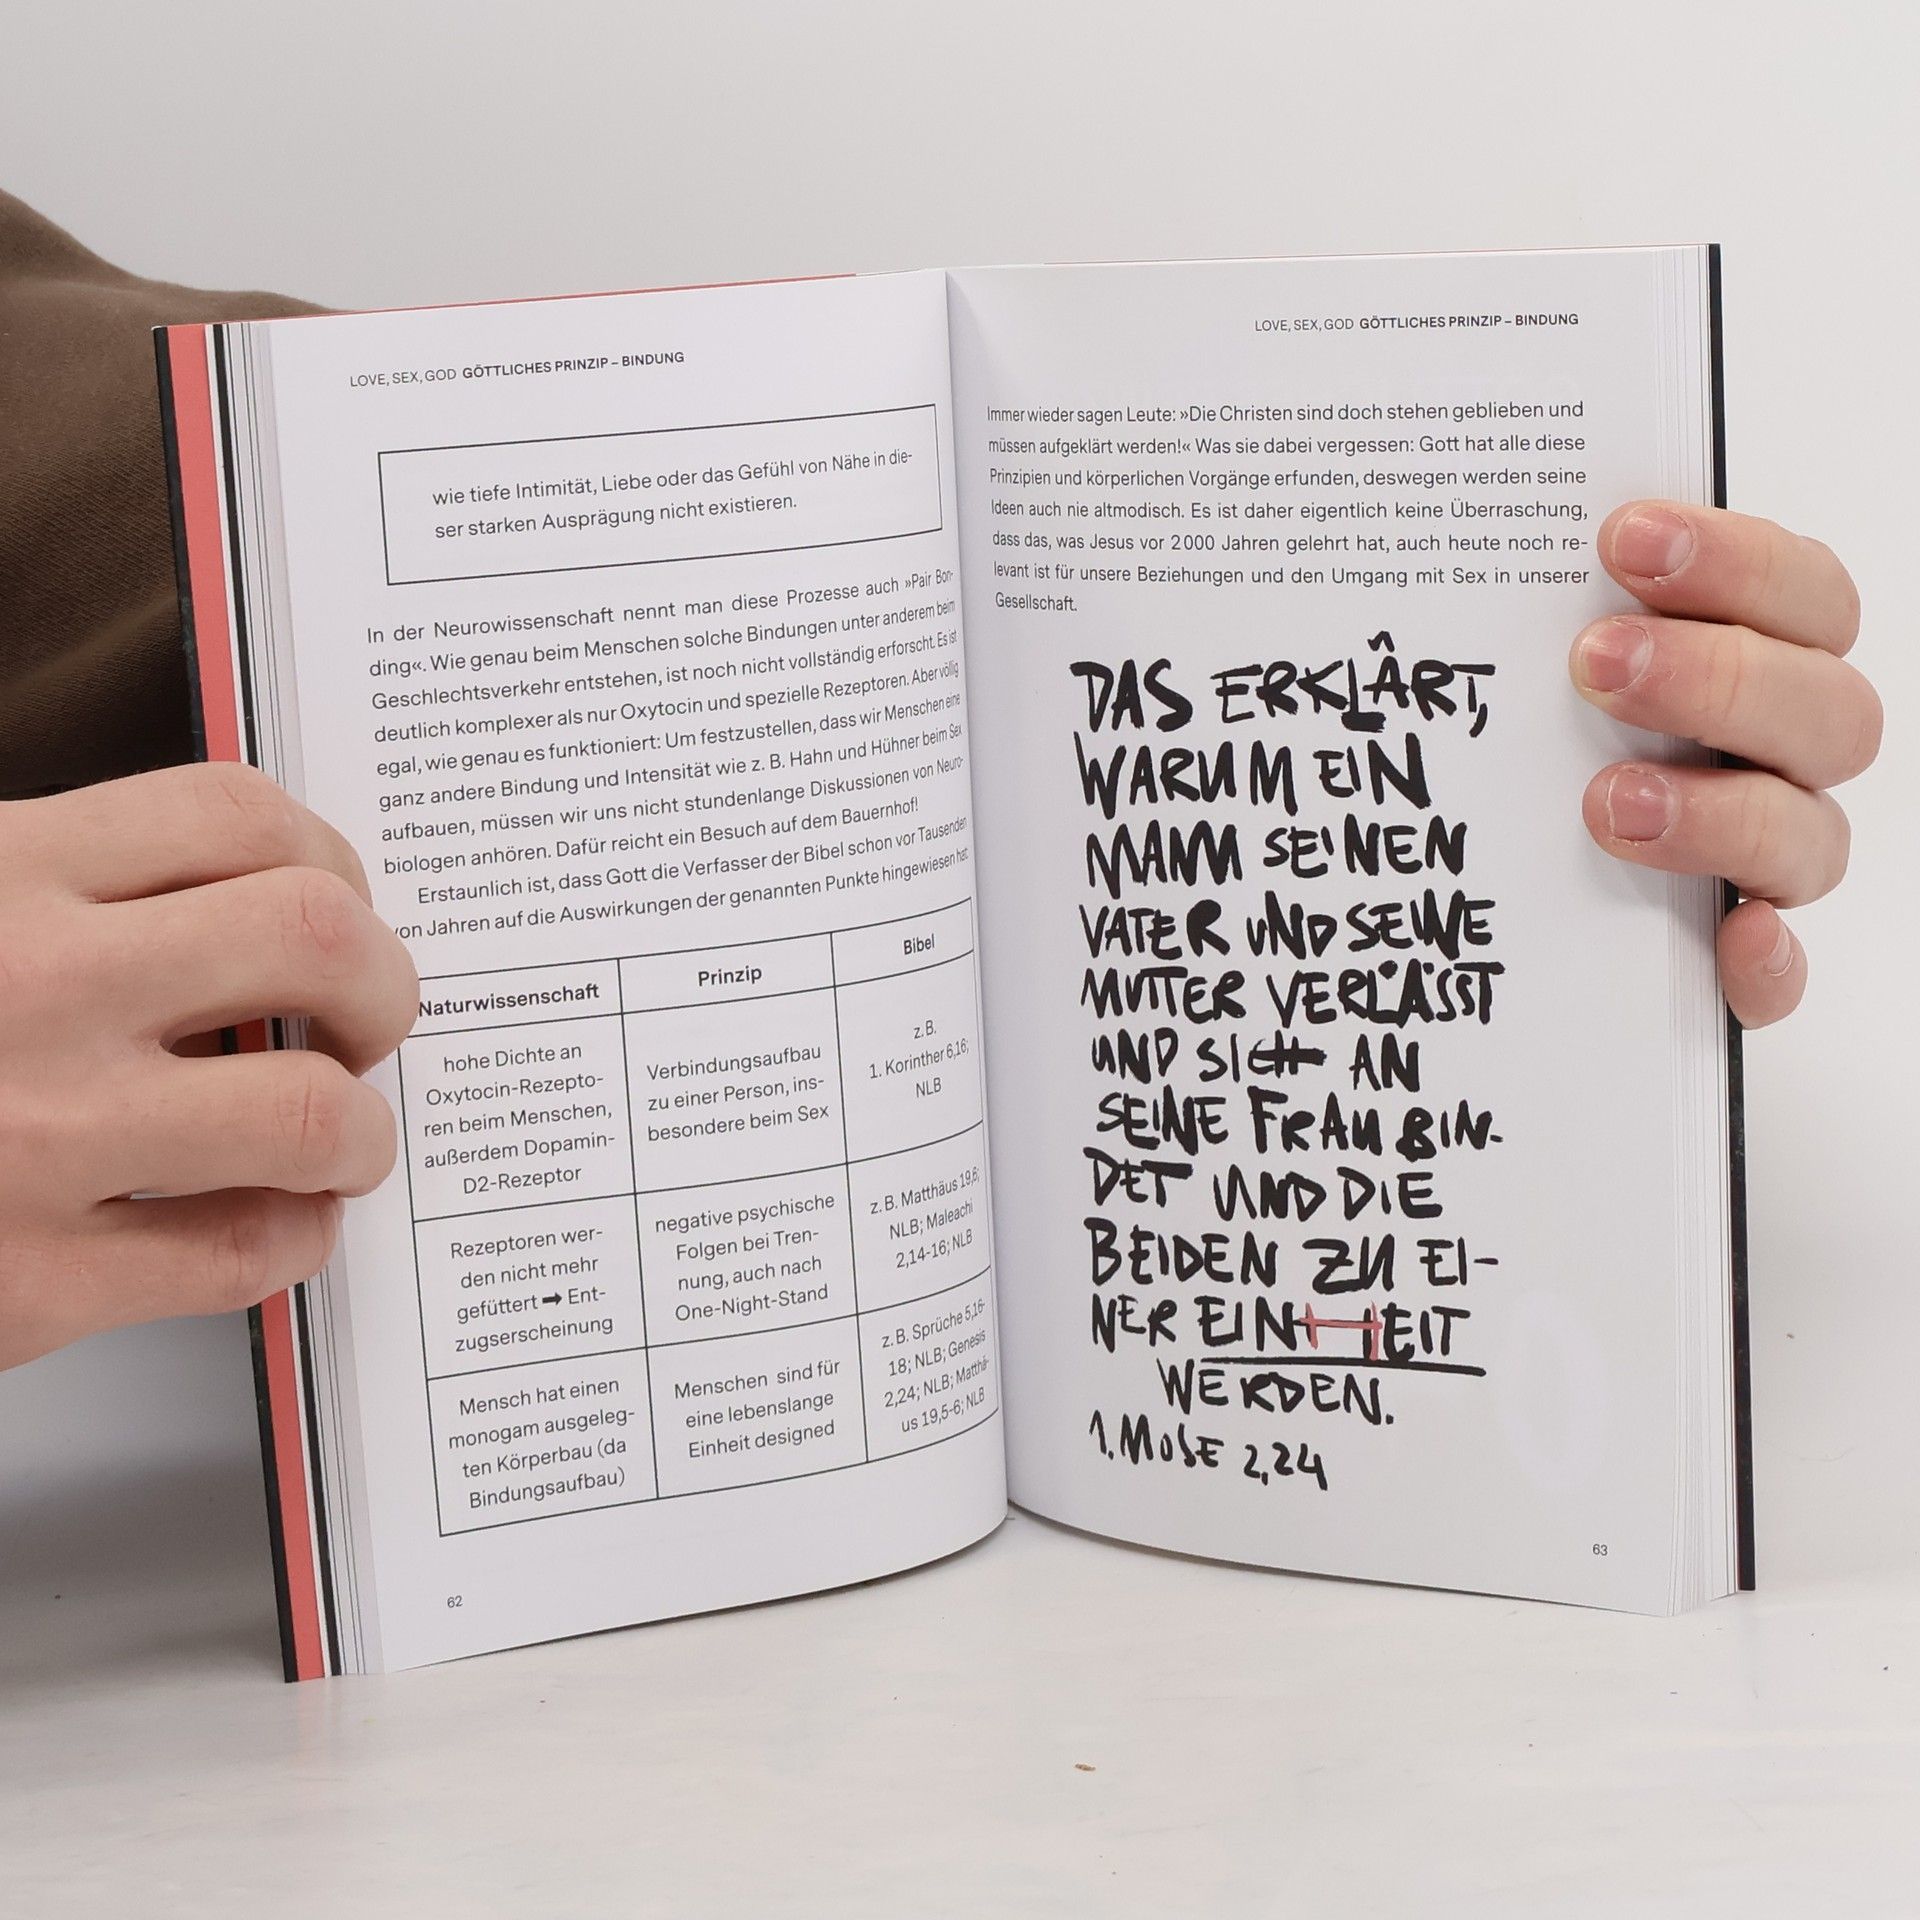 LOVE, SEX, GOD GÖTTLICHES PRINZIP – BINDUNG
wie tiefe Intimität, Liebe oder das Gefühl von Nähe in die-
ser starken Ausprägung nicht existieren.
In der Neurowissenschaft nennt man diese Prozesse auch »Pair Bon-
ding«. Wie genau beim Menschen solche Bindungen unter anderem beim
Geschlechtsverkehr entstehen, ist noch nicht vollständig erforscht. Es ist
deutlich komplexer als nur Oxytocin und spezielle Rezeptoren. Aber völlig
egal, wie genau es funktioniert: Um festzustellen, dass wir Menschen eine
ganz andere Bindung und Intensität wie z. B. Hahn und Hühner beim Sex
aufbauen, müssen wir uns nicht stundenlange Diskussionen von Neuro-
biologen anhören. Dafür reicht ein Besuch auf dem Bauernhof!
Erstaunlich ist, dass Gott die Verfasser der Bibel schon vor Tausenden
von Jahren auf die Auswirkungen der genannten Punkte hingewiesen hat:
Naturwissenschaft
Prinzip
Bibel
hohe Dichte an
Oxytocin-Rezepto-
ren beim Menschen,
außerdem Dopamin-
D2-Rezeptor
Verbindungsaufbau
zu einer Person, ins-
besondere beim Sex
z. B.
1. Korinther 6,16;
NLB
Rezeptoren wer-
den nicht mehr
gefüttert ➡ Ent-
zugserscheinung
negative psychische
Folgen bei Tren-
nung, auch nach
One-Night-Stand
z. B. Matthäus 19,6;
NLB; Maleachi
2,14-16; NLB
Mensch hat einen
monogam ausgeleg-
ten Körperbau (da
Bindungsaufbau)
Menschen sind für
eine lebenslange
Einheit designed
z. B. Sprüche 5,16-
18; NLB; Genesis
2,24; NLB; Matthä-
us 19,5-6; NLB
62
LOVE, SEX, GOD GÖTTLICHES PRINZIP – BINDUNG
Immer wieder sagen Leute: »Die Christen sind doch stehen geblieben und
müssen aufgeklärt werden!« Was sie dabei vergessen: Gott hat alle diese
Prinzipien und körperlichen Vorgänge erfunden, deswegen werden seine
Ideen auch nie altmodisch. Es ist daher eigentlich keine Überraschung,
dass das, was Jesus vor 2000 Jahren gelehrt hat, auch heute noch re-
levant ist für unsere Beziehungen und den Umgang mit Sex in unserer
Gesellschaft.
DAS ERKLÄRT,
WARUM EIN
MANN SEINEN
VATER UND SEINE
MUTTER VERLÄSST
UND SICH AN
SEINE FRAU BIN-
DET UND DIE
BEIDEN ZU EI-
NER EINHEIT
WERDEN.
1. MOSE 2,24
63